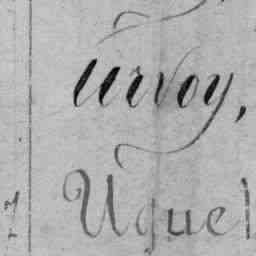 Urvoy,
Uguel